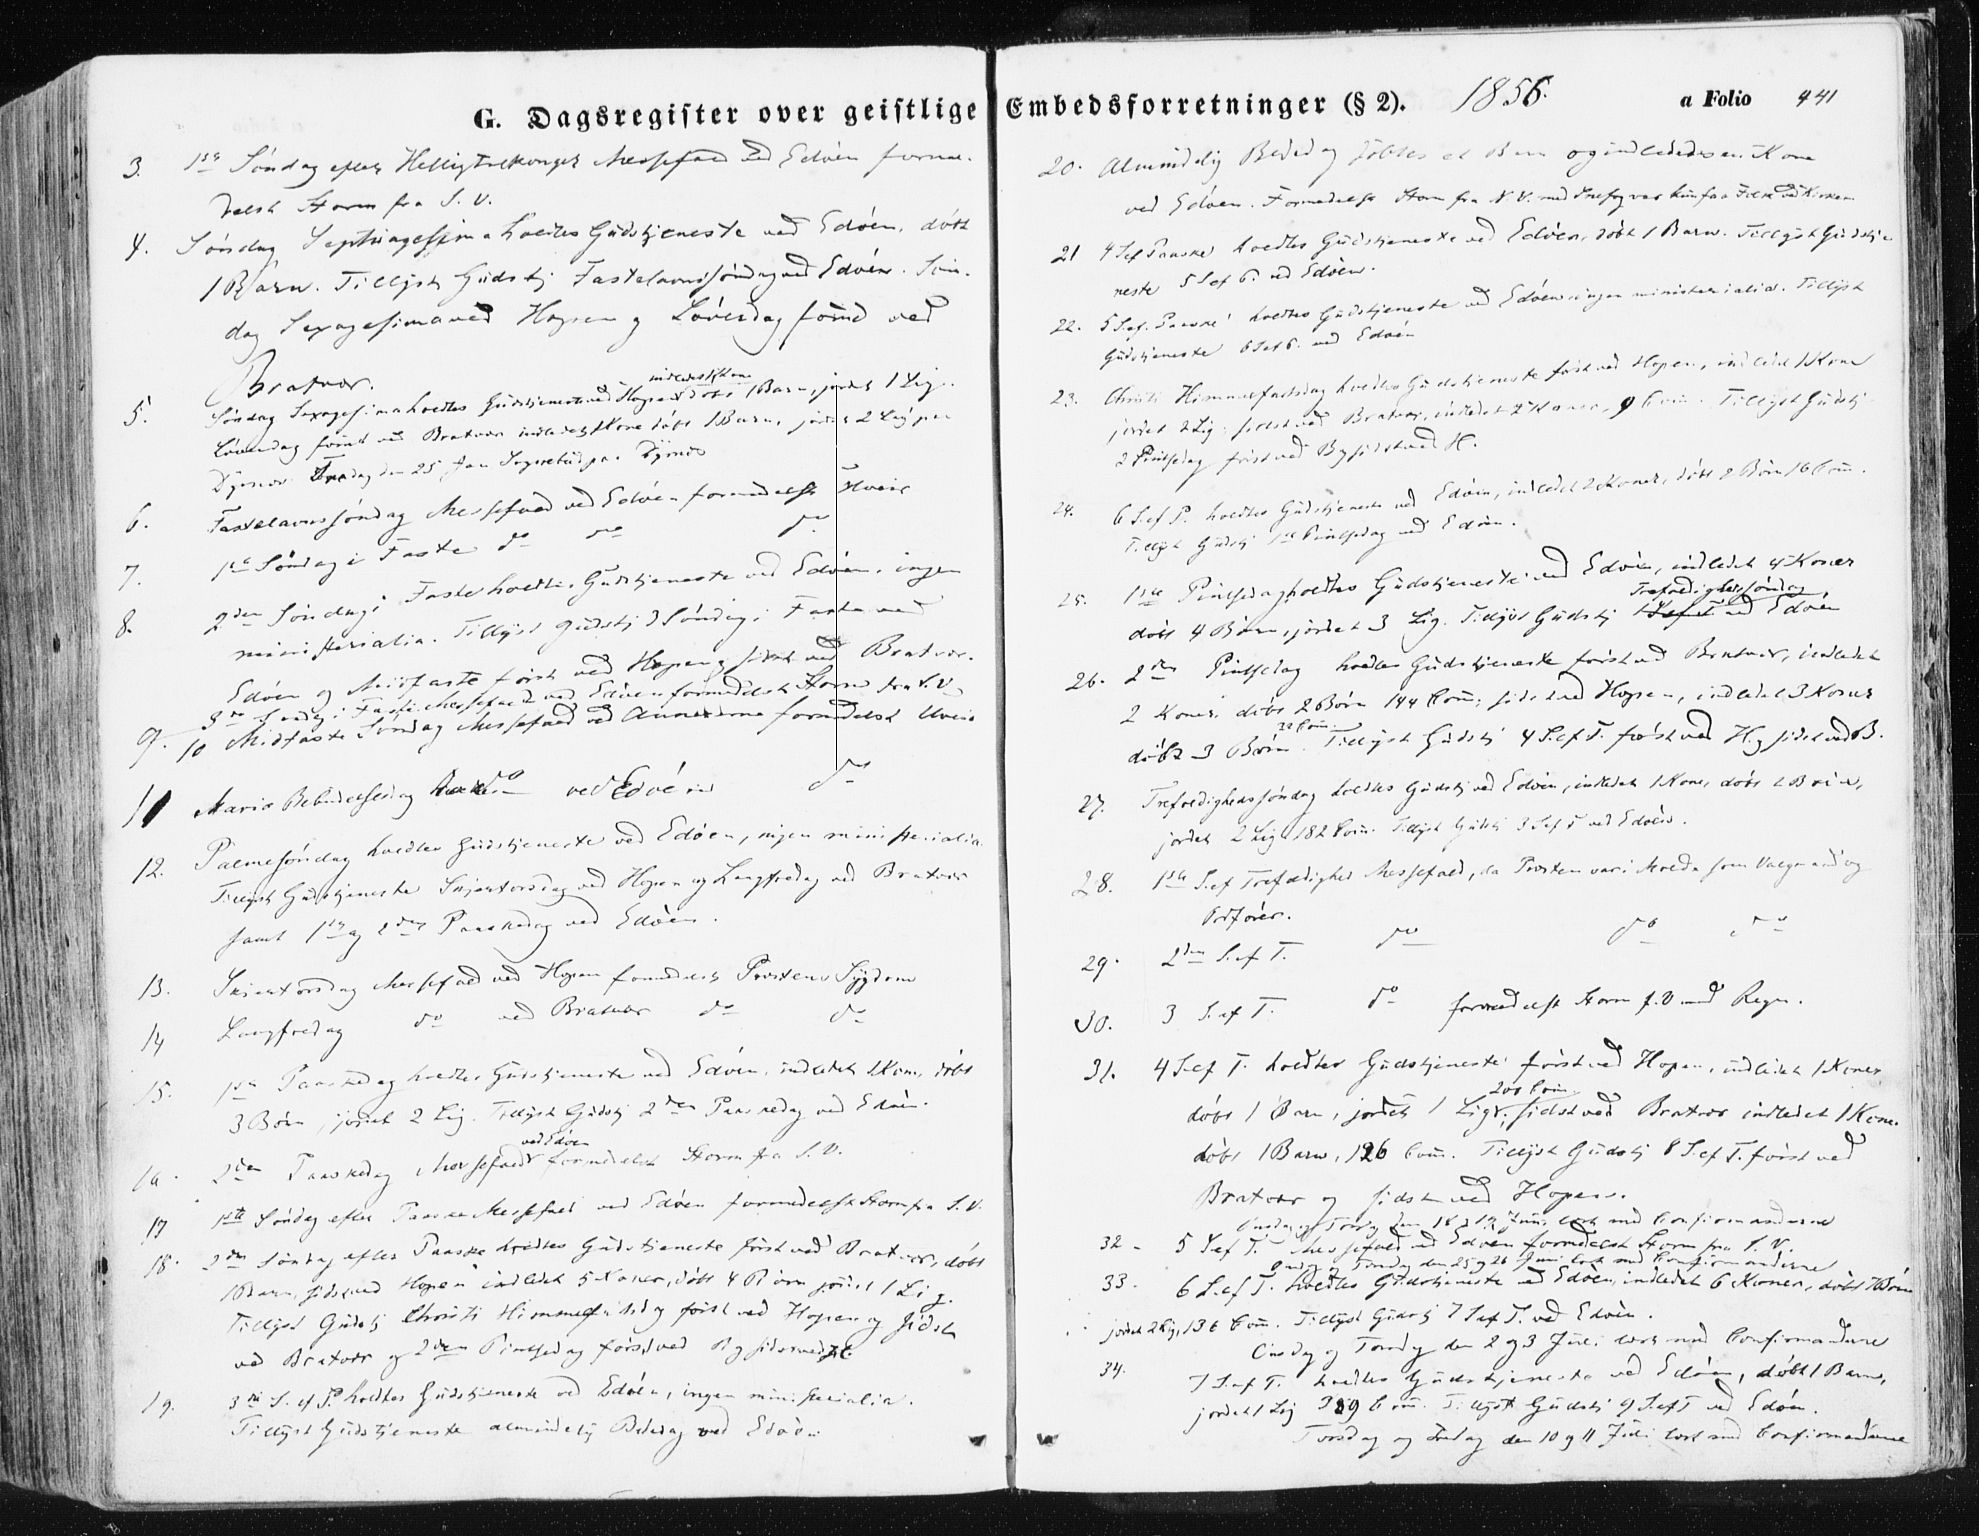 G. Dagsregister over geistlige Embedsforretninger (§ 2). 1856. a Folio 441
3. 1ste Søndag efter Helligtrekonger Messefald ved Edøen forme-
delst Storm fra S. V.
4. Søndag Septuagesima holdtes Gudstjeneste ved Edøen, døbt
1 Barn. Tillyst Gudstj Fastelavnssøndag ved Edøen. Søn-
dag Sexagesima ved Hopen og Løverdag forud ved
Bratvær.
indledet 1 Kone
5. Søndag Sexagesima holdtes Gudstjeneste ved Hopen døbt 1 Barn, jordet 1 Lig.
Løverdag forud ved Bratvær indledet 1 Kone døbt 1 Barn, jordet 2 Lig paa
Dyrnes. den 25 Jan Sognebud paa Dyrnes
6. Fastelavnssøndag Messefald ved Edøen formedelst
7. 1ste Søndag i Faste do do do
8. 2den Søndag i Faste holdtes Gudstjeneste ved Edøen, ingen
ministerialia. Tillyst Gudstj 3 Søndag i Faste ved
Edøen og Midfaste først ved Hopen og sidst ved Bratvær.
9. 3die Søndag i Faste Messefald ved Edøen formedelst Storm fra S. V.
10 Midfaste Søndag Messefald ved Annexerne formedelst
11 Mariæ Bebudelsesdag do ved Edøen do
12. Palmesøndag holdtes Gudstjeneste ved Edøen, ingen ministerialia.
Tillyst Gudstjeneste Skjærtorsdag ved Hopen og Langfredag ved Bratvær
samt 1ste og 2den Paaskedag ved Edøen.
13. Skjærtorsdag Messefald ved Hopen formedelst Provstens Sygdom
14 Langfredag do ved Bratvær do do
15. 1ste Paaskedag holdtes Gudstjeneste ved Edøen, indledet 1 Kone, døbt
3 Børn, jordet 2 Lig. Tillyst Gudstj 2den Paaskedag ved Edøen.
ved Edøen
16. 2den Paaskedag Messefald formedelst Storm fra S. V.
17 1ste Søndag efter Paaske Messefald ved Edøen formedelst Storm fra S. V.
18. 2den Søndag efter Paaske holdtes Gudstjeneste først ved Bratvær, døbt
1 Barn, sidst ved Hopen indledet 5 Koner, døbt 4 Børn jordet 1 Lig.
Tillyst Gudstj Christi Himmelfartsdag først ved Hopen og sidst
ved Bratvær og 2den Pintsedag først ved B og sidst ved H.
19. 3die S. ef P. holdtes Gudstjeneste ved Edøen, ingen ministerialia.
Tillyst Gudstjeneste almindelig Bededag ved Edøen
20. Almindelig Bededag døbtes et Barn og indlededes en Kone
ved Edøen. Formedelst Storm fra N. V. med Snefog var kun faa Folk ved Kirken
21 4 S ef Paaske holdtes Gudstjeneste ved Edøen, døbt 1 Barn. Tillyst Gudstje-
neste 5 S ef P. ved Edøen.
22. 5 S. ef. Paaske holdtes Gudstjeneste ved Edøen ingen ministerialia. Tillyst
Gudstjeneste 6 S ef P. ved Edøen
23. Christi Himmelfartsdag holdtes Gudstjeneste først ved Hopen, indledet 1 Kone
jordet 2 Lig; sidst ved Bratvær, indledet 2 Koner, 9 Com. Tillyst Gudstj
2 Pintsedag først ved B og sidst ved H.
24. 6 S. ef P. holdtes Gudstjeneste ved Edøen, indledet 2 Koner, døbt 2 Børn 16 Com.
Tillyst Gudstj 1ste Pintsedag ved Edøen.
25. 1ste Pintsedag holdtes Gudstjeneste ved Edøen, indledet 4 Koner
Trefoldighedssøndag
døbt 4 Børn, jordet 3 Lig. Tillyst Gudstj ved Edøen
26. 2den Pintsedag holdtes Gudstjeneste først ved Bratvær, indledet
2 Koner døbt 2 Børn 144 Com; sidst ved Hopen, indledet 3 Koner
22 Com.
døbt 3 Børn. Tillyst Gudstj 4 S. ef T. først ved H og sidst ved B.
27. Trefoldighedssøndag holdtes Gudstj ved Edøen, indledet 1 Kone, døbt 2 Børn,
jordet 2 Lig 182 Com. Tillyst Gudstj 3 S ef T ved Edøen.
28. 1ste S. ef Trefoldighed Messefald, da Provsten var i Molde som Valgmand og
Ordfører.
29. 2den S. ef T. do do do
30. 3 S. ef T. do formedelst Storm f. V med Regn.
31. 4 S. ef T. holdtes Gudstjeneste først ved Hopen, indledet 1 Kone
200 Com.
døbt 1 Barn, jordet 1 Lig; sidst ved Bratvær indledet 1 Kone.
døbt 1 Barn, 126 Com. Tillyst Gudstj 8 S. ef T. først ved
Bratvær og sidst ved Hopen.
Onsdag og Torsdag den 18 og 19 Juni læst med Confirmanderne
32 - 5 S ef T. Messefald ved Edøen formedelst Storm fra S. V.
Onsdag og Torsdag den 25 og 26 Juni læst med Confirmanderne
33. 6 S. ef T. holdtes Gudstjeneste ved Edøen, indledet 6 Koner, døbt 7 Børn
jordet 2 Lig, 136 Com. Tillyst Gudstj 7 S ef T. ved Edøen.
Onsdag og Torsdag den 2 og 3 Juli læst med Confirmanderne
34. 7 S. ef T. holdtes Gudstjeneste ved Edøen, døbt 1 Barn,
jordet 1 Lig 389 Com. Tillyst Gudstj 9 S. ef T ved Edøen.
Torsdag og Fredag den 10 og 11 Juli læst med Confirmanderne